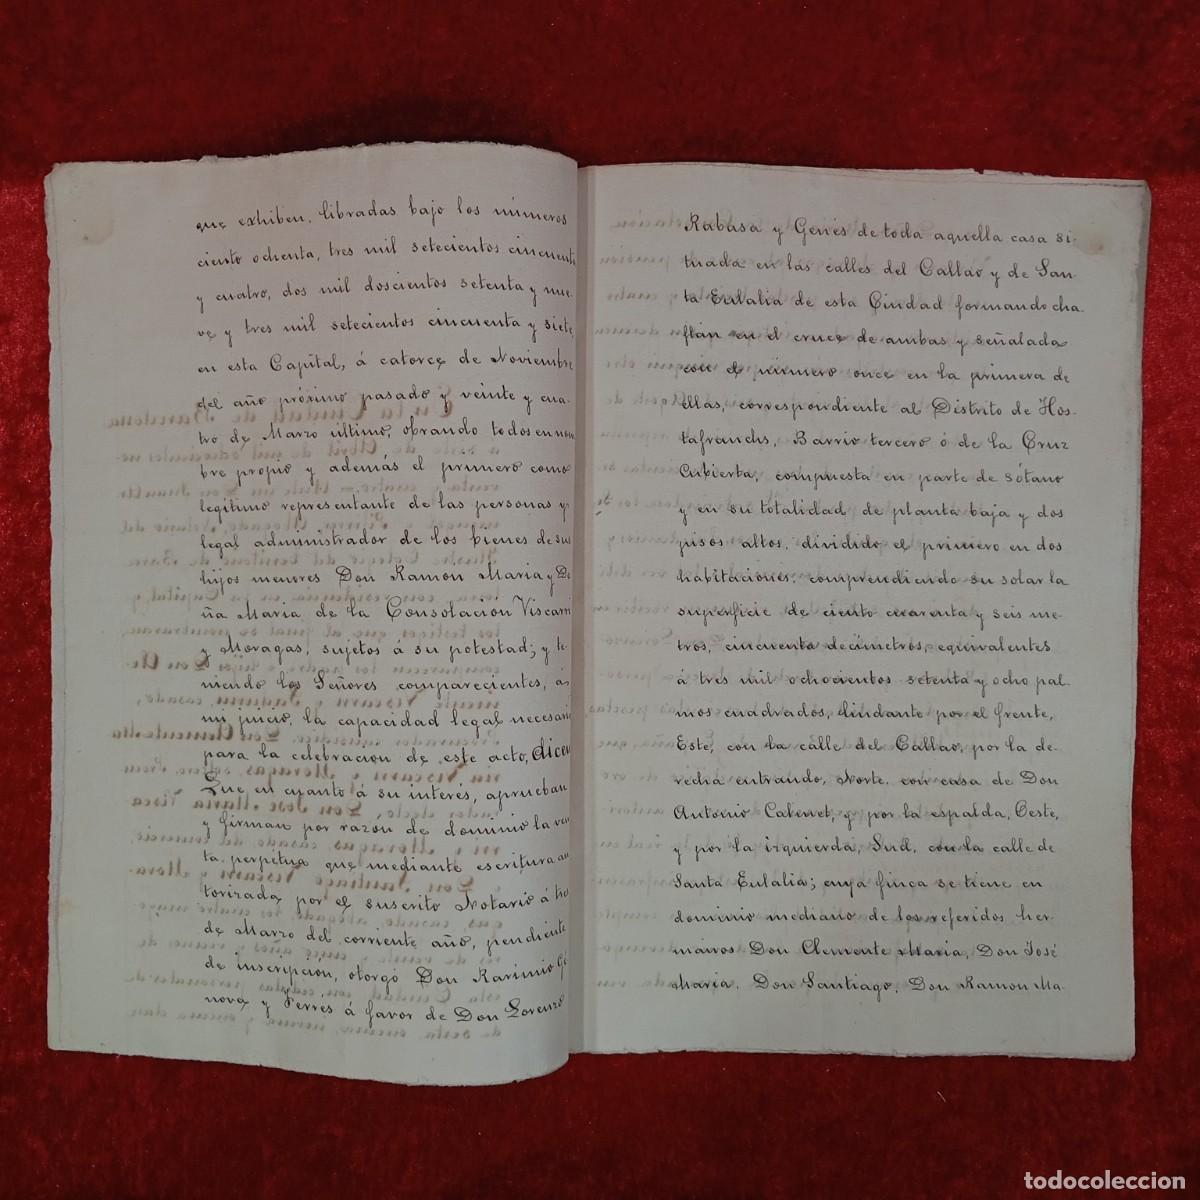 que exhiben, libradas bajo los números
ciento ochenta, tres mil setecientos cincuenta
y cuatro, dos mil doscientos setenta y nue-
ve y tres mil setecientos cincuenta y siete,
en esta Capital, á catorce de Noviembre
del año próximo pasado y veinte y cua-
tro de Marzo último, obrando todos en nom
bre propio y además el primero como
legítimo representante de las personas y
legal administrador de los bienes de sus
hijos menores Don Ramon Maria y Do
ña Maria de la Consolación Viscarri
y Moragas, sujetos á su potestad; y te-
niendo los Señores comparecientes, á
mi juicio, la capacidad legal necesaria
para la celebracion de este acto, dicen:
Que en cuanto á su interés, aprueban
y firman por razón de dominio la ven
ta perpétua que mediante escritura au
torizada por el suscrito Notario á
de Marzo del corriente año, pendiente
de inscripcion, otorgó Don
y Ferrés á favor de Don Lorenzo
Rabasa y Genés de toda aquella casa si-
tuada en las calles del Callao y de San-
ta Eulalia de esta Ciudad formando cha-
flán en el cruce de ambas y señalada
con el número once en la primera de
ellas, correspondiente al Distrito de Hos-
tafranchs, Barrio tercero ó de la Cruz
Cubierta, compuesta en parte de sótano
y en su totalidad de planta baja y dos
pisos altos, dividido el primero en dos
habitaciones; comprendiendo su solar la
superficie de ciento cuarenta y seis me-
tros, cincuenta decímetros, equivalentes
á tres mil ochocientos setenta y ocho pal-
mos cuadrados, lindante por el frente,
Este, con la calle del Callao, por la de-
recha entrando, Norte, con casa de Don
Antonio y por la espalda, Oeste,
y por la izquierda, Sud, con la calle de
Santa Eulalia; cuya finca se tiene en
dominio mediano de los referidos her-
manos Don Clemente Maria, Don José
Maria, Don Santiago, Don Ramon Ma-
todocoleccion